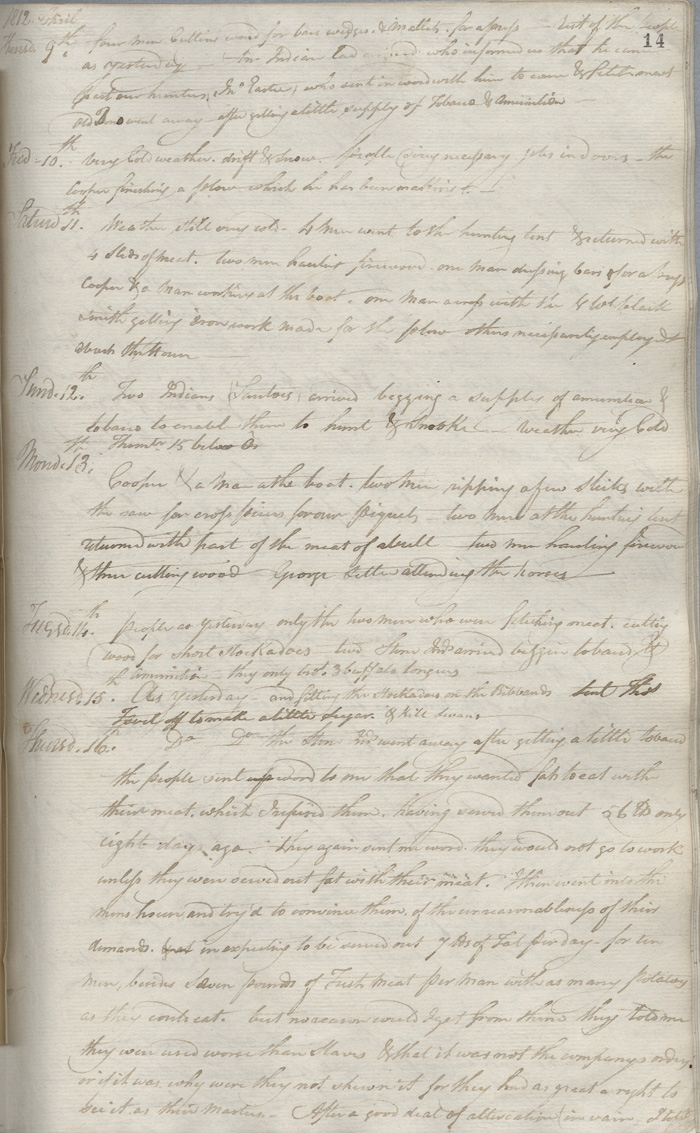 1812 April
14
Thursd. 9th four men Cutting wood for bars wedges & Mallets for a press - rest of the people
as yesterday - An Indian Lad arrived who informed us that he came
past our hunters, who sent in word with him to come & fetch meat
went away after getting a little supply of Tobacco & Amunition
Frid 10th very Cold weather. drift & snow. people doing necessary jobs in doors - the
Cooper finishing a plow which he has been making
Saturd 11th Weather still very cold - 4 Men went to the hunting tent & returned with
4 Sleds of meat. two men hauling firewood. one man dressing bars &c for a press
Cooper & a Man working at the boat. one man with the black
smith getting iron work made for the plow others necessarily employed
about the House
Sund. 12th Two Indians (Santoes) arrived begging a supply of amunition &
tobacco to enable them to hunt & smoke - weather very Cold
Thermtr 15 below 0
Mond. 13th
Cooper & a Man at the boat. two Men ripping a few sticks with
the saw for cross pieces for our piquets - two men at the hunting tent
returned with part of the meat of a bull two men hauling firewood
& three cutting wood - George attending the horses
Tuesd 14th people as yesterday only the two men who were fetching meat. cutting
wood for short Stockadoes - two Stone Indns arrived begging tobacco &
amunition - they only brot. 3 buffalo tongues
Wednesd 15th. As yesterday - and fitting the Stockadoes on the Ribbands sent Thos
Favel off to make a little Sugar. & kill Swans
Thursd. 16th. Do Do the Stone Ind went away after getting a little tobacco
the people sent up word to me that they wanted fat to eat with
their meat. which I refused them. having served them out 26 lbs only
eight days ago. They again sent me word. they would not go to work
unless they were served out fat with their meat. I then went into the
mens house and try'd to convince them of the unreasonableness of their
demands. in expecting to be served out 7 lbs of Fat per day - for ten
men, besides Seven pounds of Fresh meat per man with as many potatoes
as they could eat. but no reason could I get from them they told me
they were used worse than Slaves & that it was not the companys orders
or if it was, why were they not shewn it for they had as great a right to
see it as their Masters - After a good deal of altercation in vain, I told